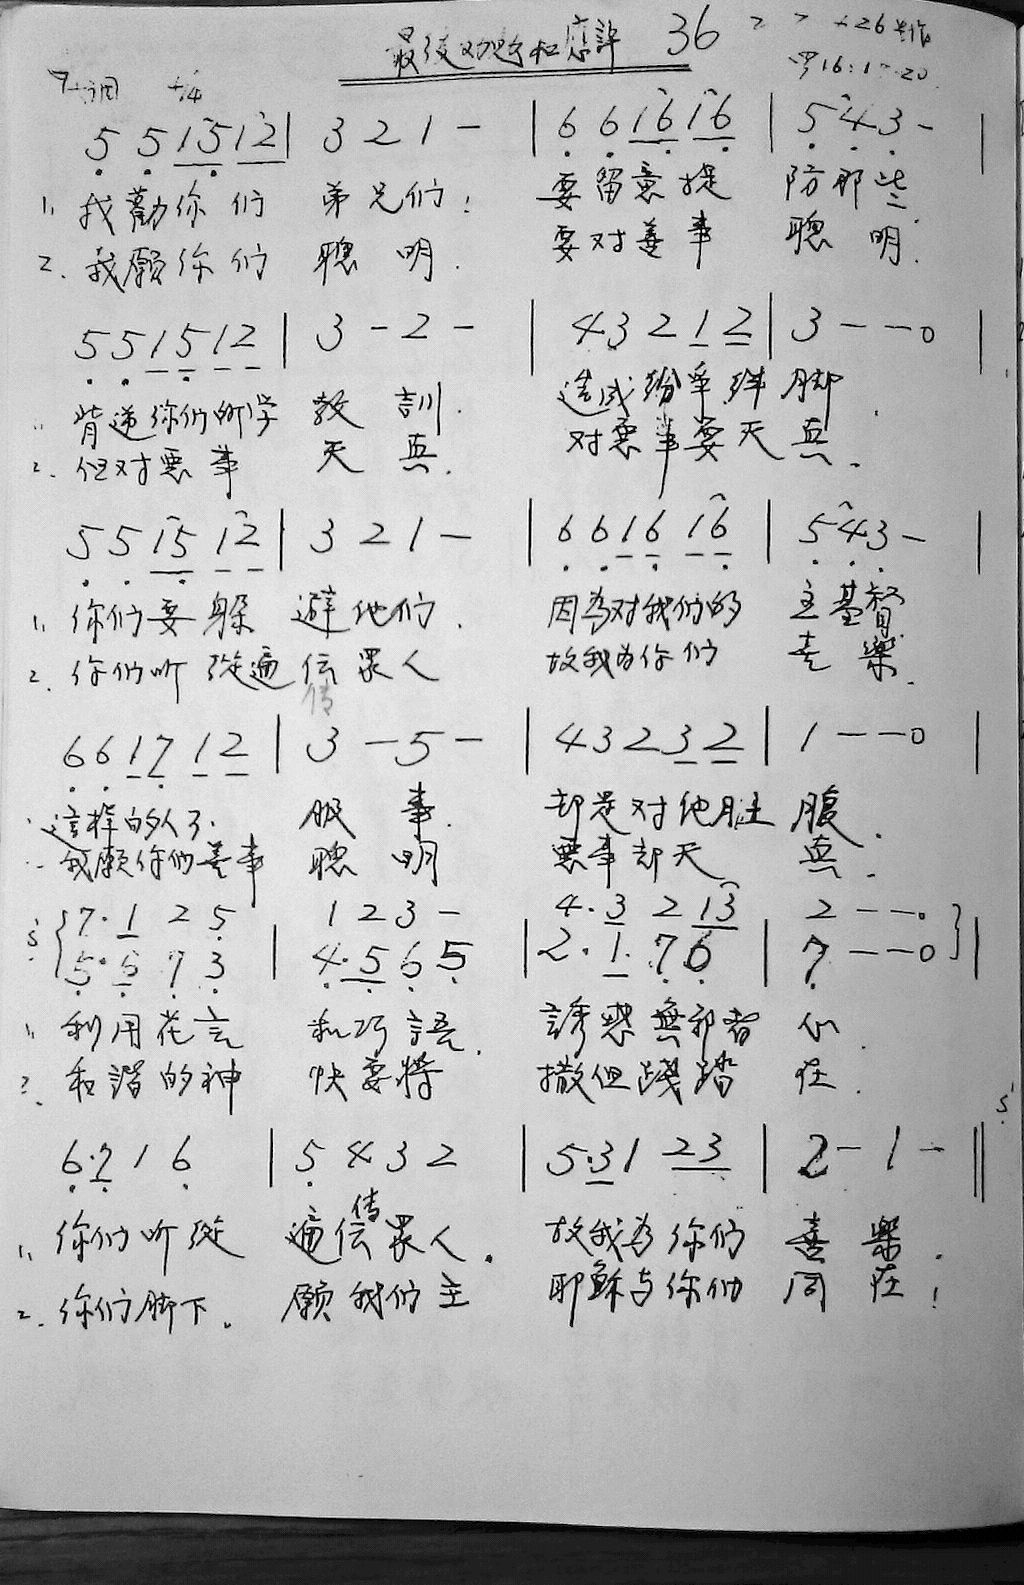 最後 和應許 36
罗16:17-20
F调 4/4
5 5 1 5 1 2 | 3 2 1 - | 6 6 1 6 1 6 | 5 4 3 - |
1. 我勸你们 弟兄们! 要留意提 防那些
2. 我願你们 聰明. 要对善事 聰明.
5 5 1 5 1 2 | 3 - 2 - | 4 3 2 1 2 | 3 - - 0 |
背逆你们所学 教訓. 造成紛爭絆脚.
2. 但对恶事 天真. 对恶事要天真.
5 5 1 5 1 2 | 3 2 1 - | 6 6 1 6 1 6 | 5 4 3 - |
1. 你们要躲 避他们. 因為对我们的 主基督
2. 你们听從遍 传眾人 故我为你们 喜樂.
6 6 1 7 1 2 | 3 - 5 - | 4 3 2 3 2 | 1 - - 0 |
這样的人不 服事. 却是对他肚腹.
我願你们善事 聰明 恶事却天真.
7. 1 2 5 | 1 2 3 - | 4. 3 2 1 3 | 2 - - 0 |
5. 5 7 3 | 4. 5 6 5 | 2. 1. 7 6 | 7 - - 0 |
1. 利用花言 和巧語. 誘惑無邪者 心
2. 和諧的神 快要將 撒但踐踏 在.
6. 7 1 6 | 5 4 3 2 | 5. 3 1 2 3 | 2 - 1 - ||
1. 你们听從 遍传眾人. 故我为你们 喜樂.
2. 你们脚下. 願我们主 耶穌与你们 同在!